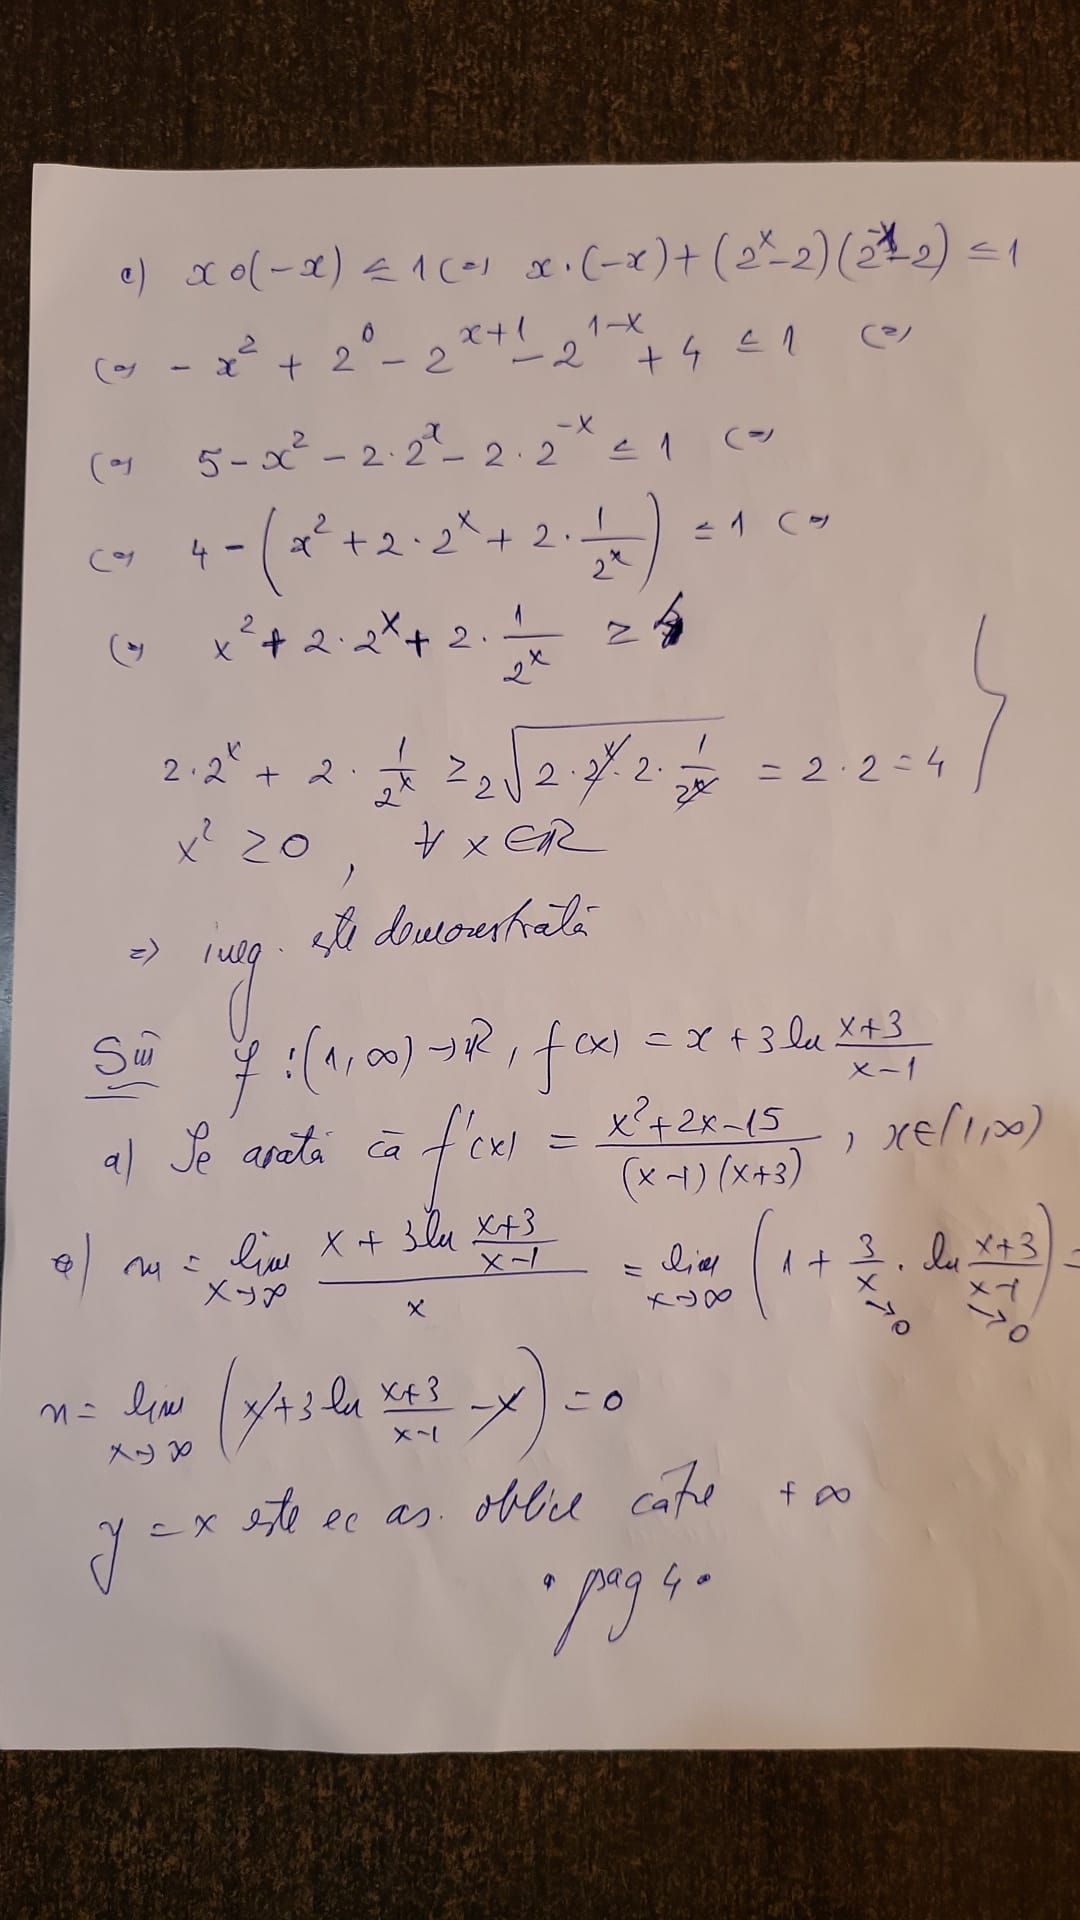 c) x∘(-x) ≤ 1 (=) x·(-x)+(2^x-2)(2^-x-2) ≤ 1
(=) -x^2 + 2^0 - 2^(x+1) - 2^(1-x) + 4 ≤ 1 (=)
(=) 5-x^2-2·2^x-2·2^-x ≤ 1 (=)
(=) 4-(x^2+2·2^x+2·1/2^x) ≤ 1 (=)
(=) x^2+2·2^x+2·1/2^x ≥ 4
2·2^x + 2·1/2^x ≥ 2√(2·2^x·2·1/2^x) = 2·2=4
x^2 ≥ 0, ∀ x∈R
=> ineg. este demonstrată
SIII f:(1,∞)→R, f(x) = x+3ln (x+3)/(x-1)
a) Se arată că f'(x) = (x^2+2x-15)/((x-1)(x+3)), x∈(1,∞)
m = lim x→∞ (x+3ln (x+3)/(x-1))/x = lim x→∞ (1+3/x·ln (x+3)/(x-1)) = →0 →0
n = lim x→∞ (x+3ln (x+3)/(x-1) -x) = 0
y = x este ec as. oblice către +∞
• pag 4 •